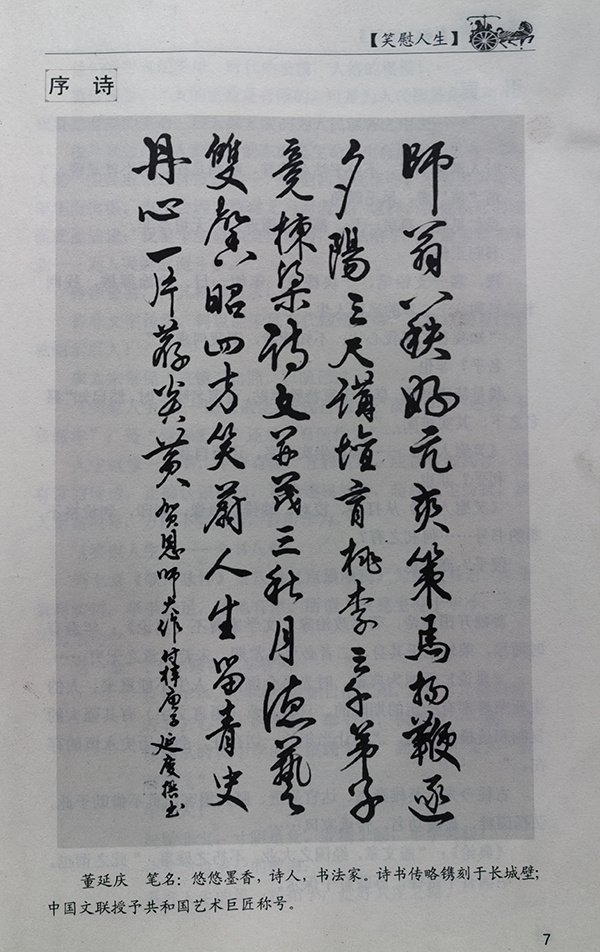 【笑慰人生】
序 诗
師翁八秩好亢爽策馬揚鞭逐
夕陽三尺講壇育桃李三千弟子
竟棟梁詩文并茂三秋月德藝
雙馨昭四方笑慰人生留青史
丹心一片荐炎黄 贺恩師大作付梓庚子延慶撰書
董延庆 笔名：悠悠墨香，诗人，书法家。诗书传略镌刻于长城壁；
中国文联授予共和国艺术巨匠称号。
7